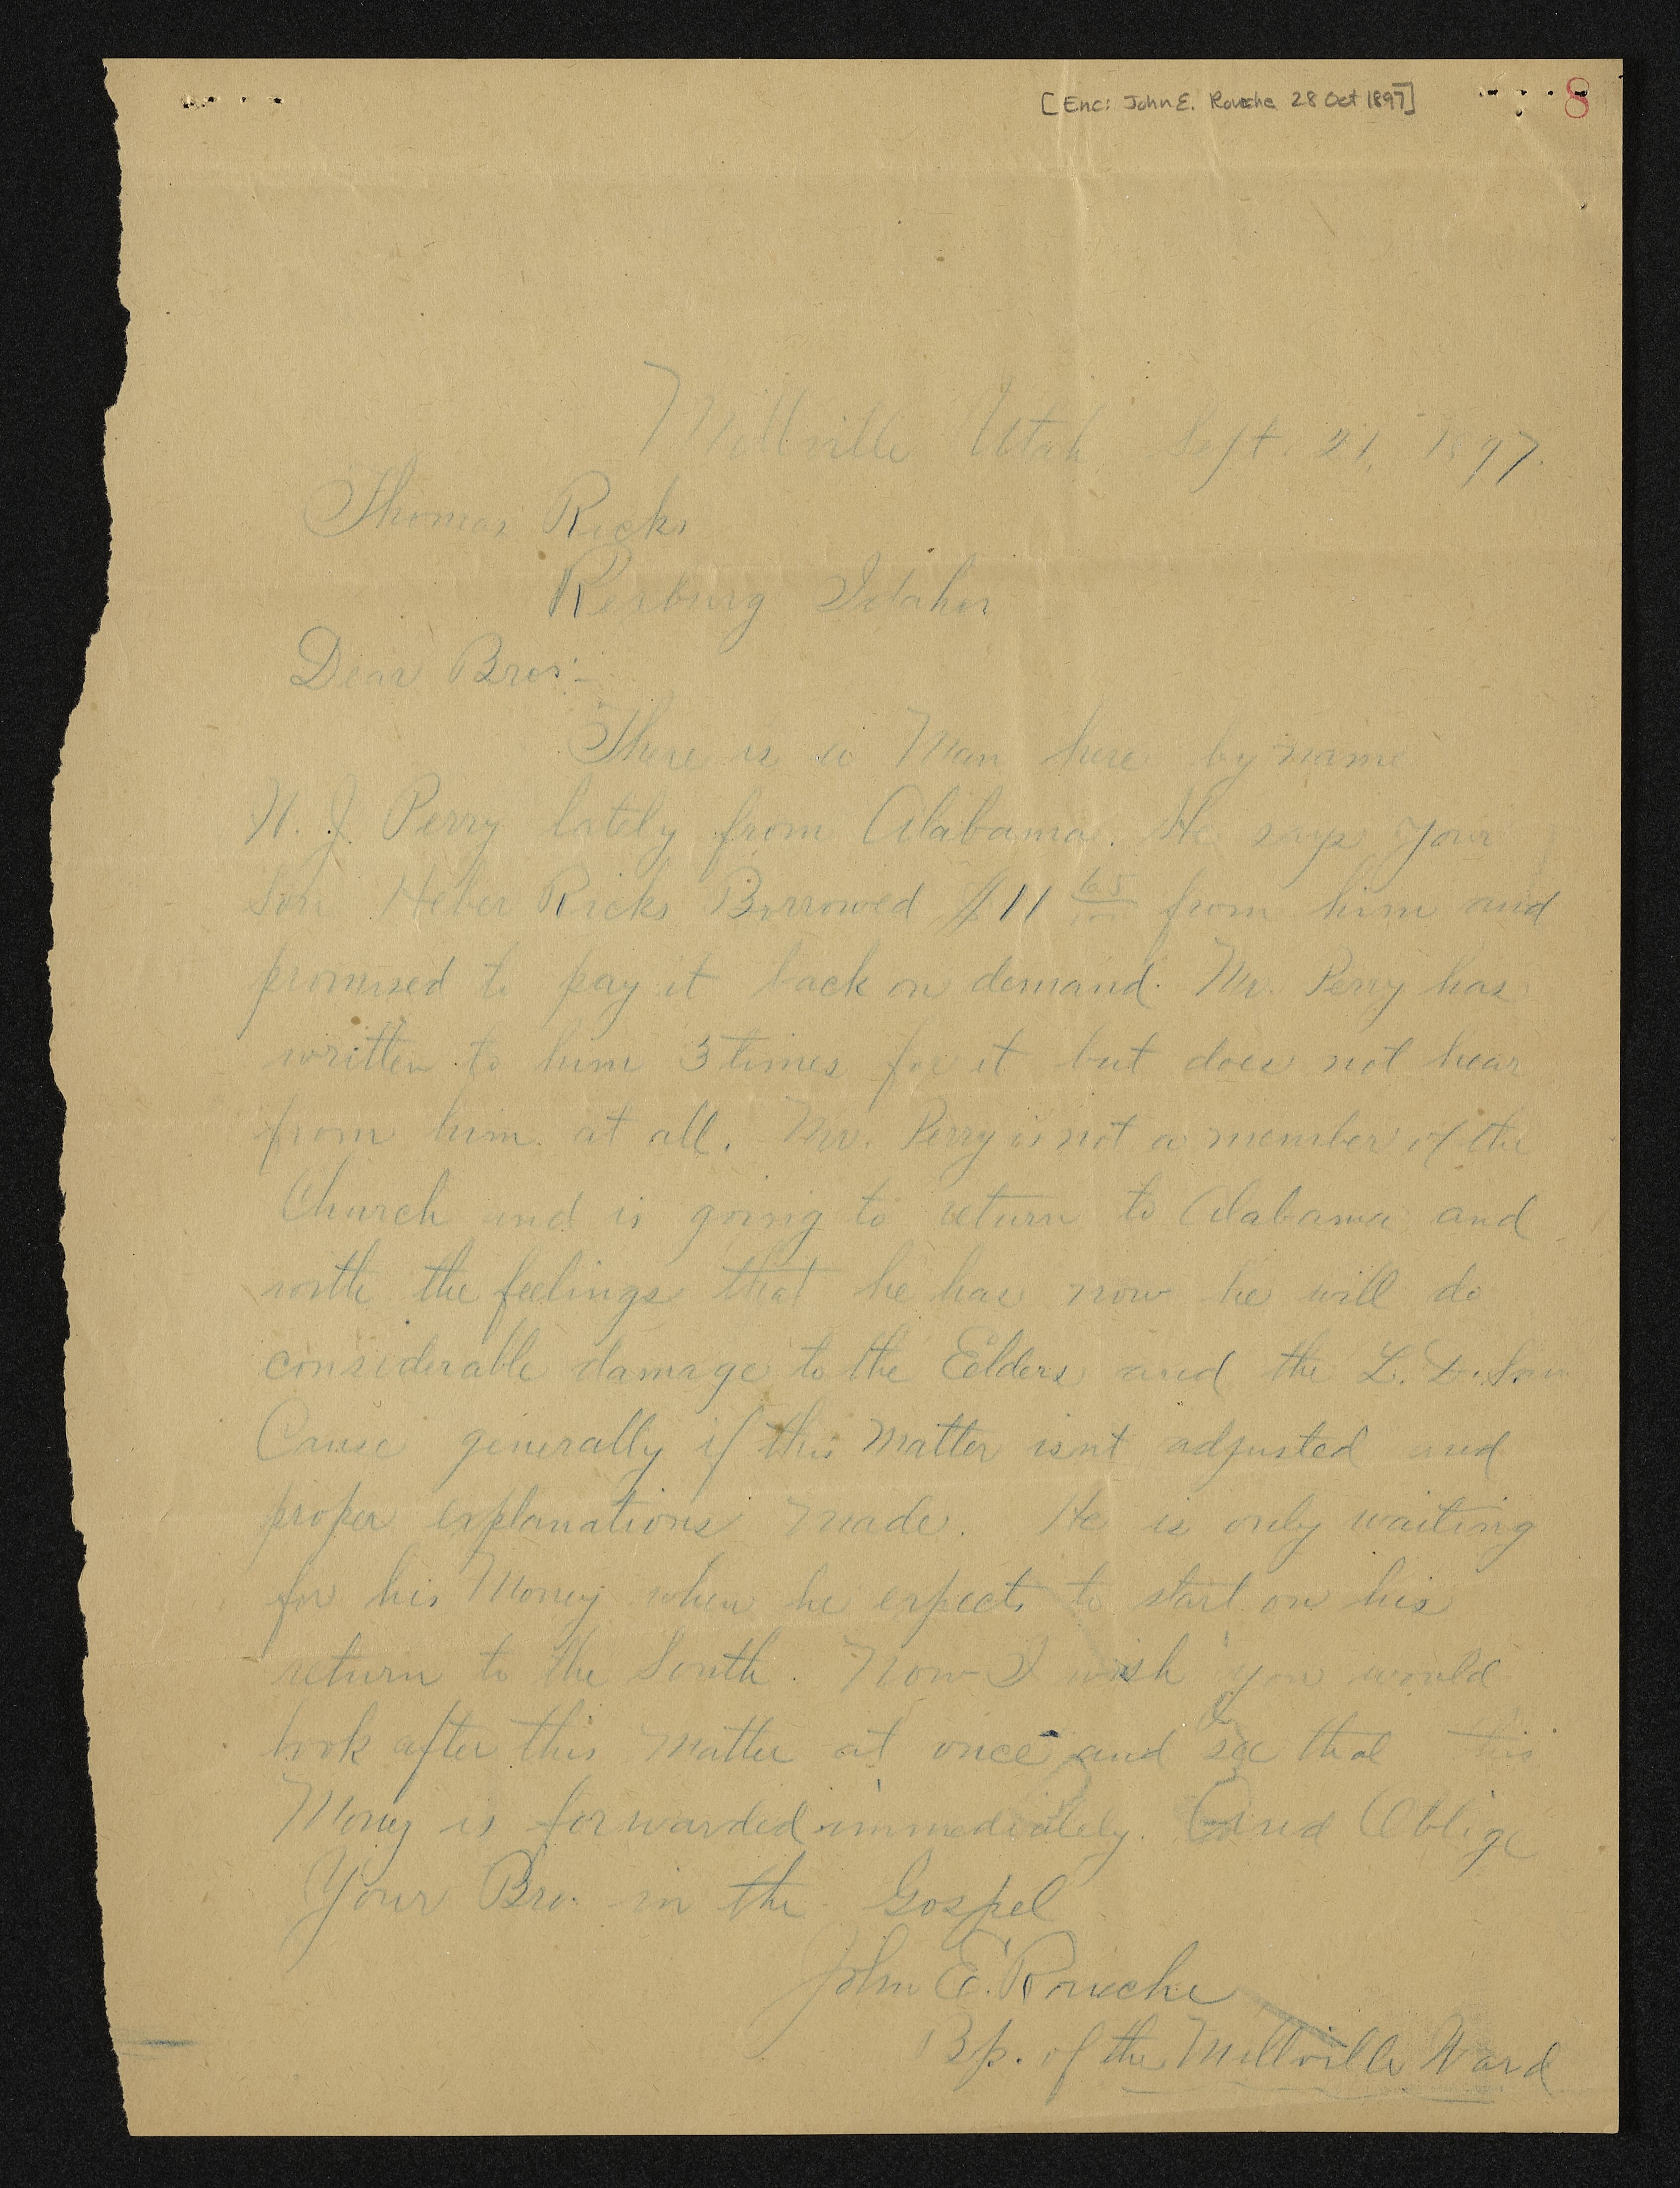 [Enc: John E. Roueche 28 Oct 1897]
8
Millville Utah Sept. 21, 1897.
Thomas Ricks
Rexburg Idaho
Dear Bros:-
There is a Man here by name
N. J. Perry lately from Alabama. He says your
Son Heber Ricks Borrowed $11 65/100 from him and
promised to pay it back on demand. Mr. Perry has
written to him 3 times for it but does not hear
from him at all. Mr. Perry is not a member of the
Church and is going to return to Alabama and
with the feelings that he has now he will do
considerable damage to the Eelders and the L. D.
Cause generally if this Matter isnt adjusted and
proper explanations Made. He is only waiting
for his Money when he expects to start on his
return to the South. Now I wish you would
look after this Matter at once and see that this
Money is forwarded immediately. And Oblige
Your Bro. in the Gospel
John E. Roueche
Bp. of the Millville Ward